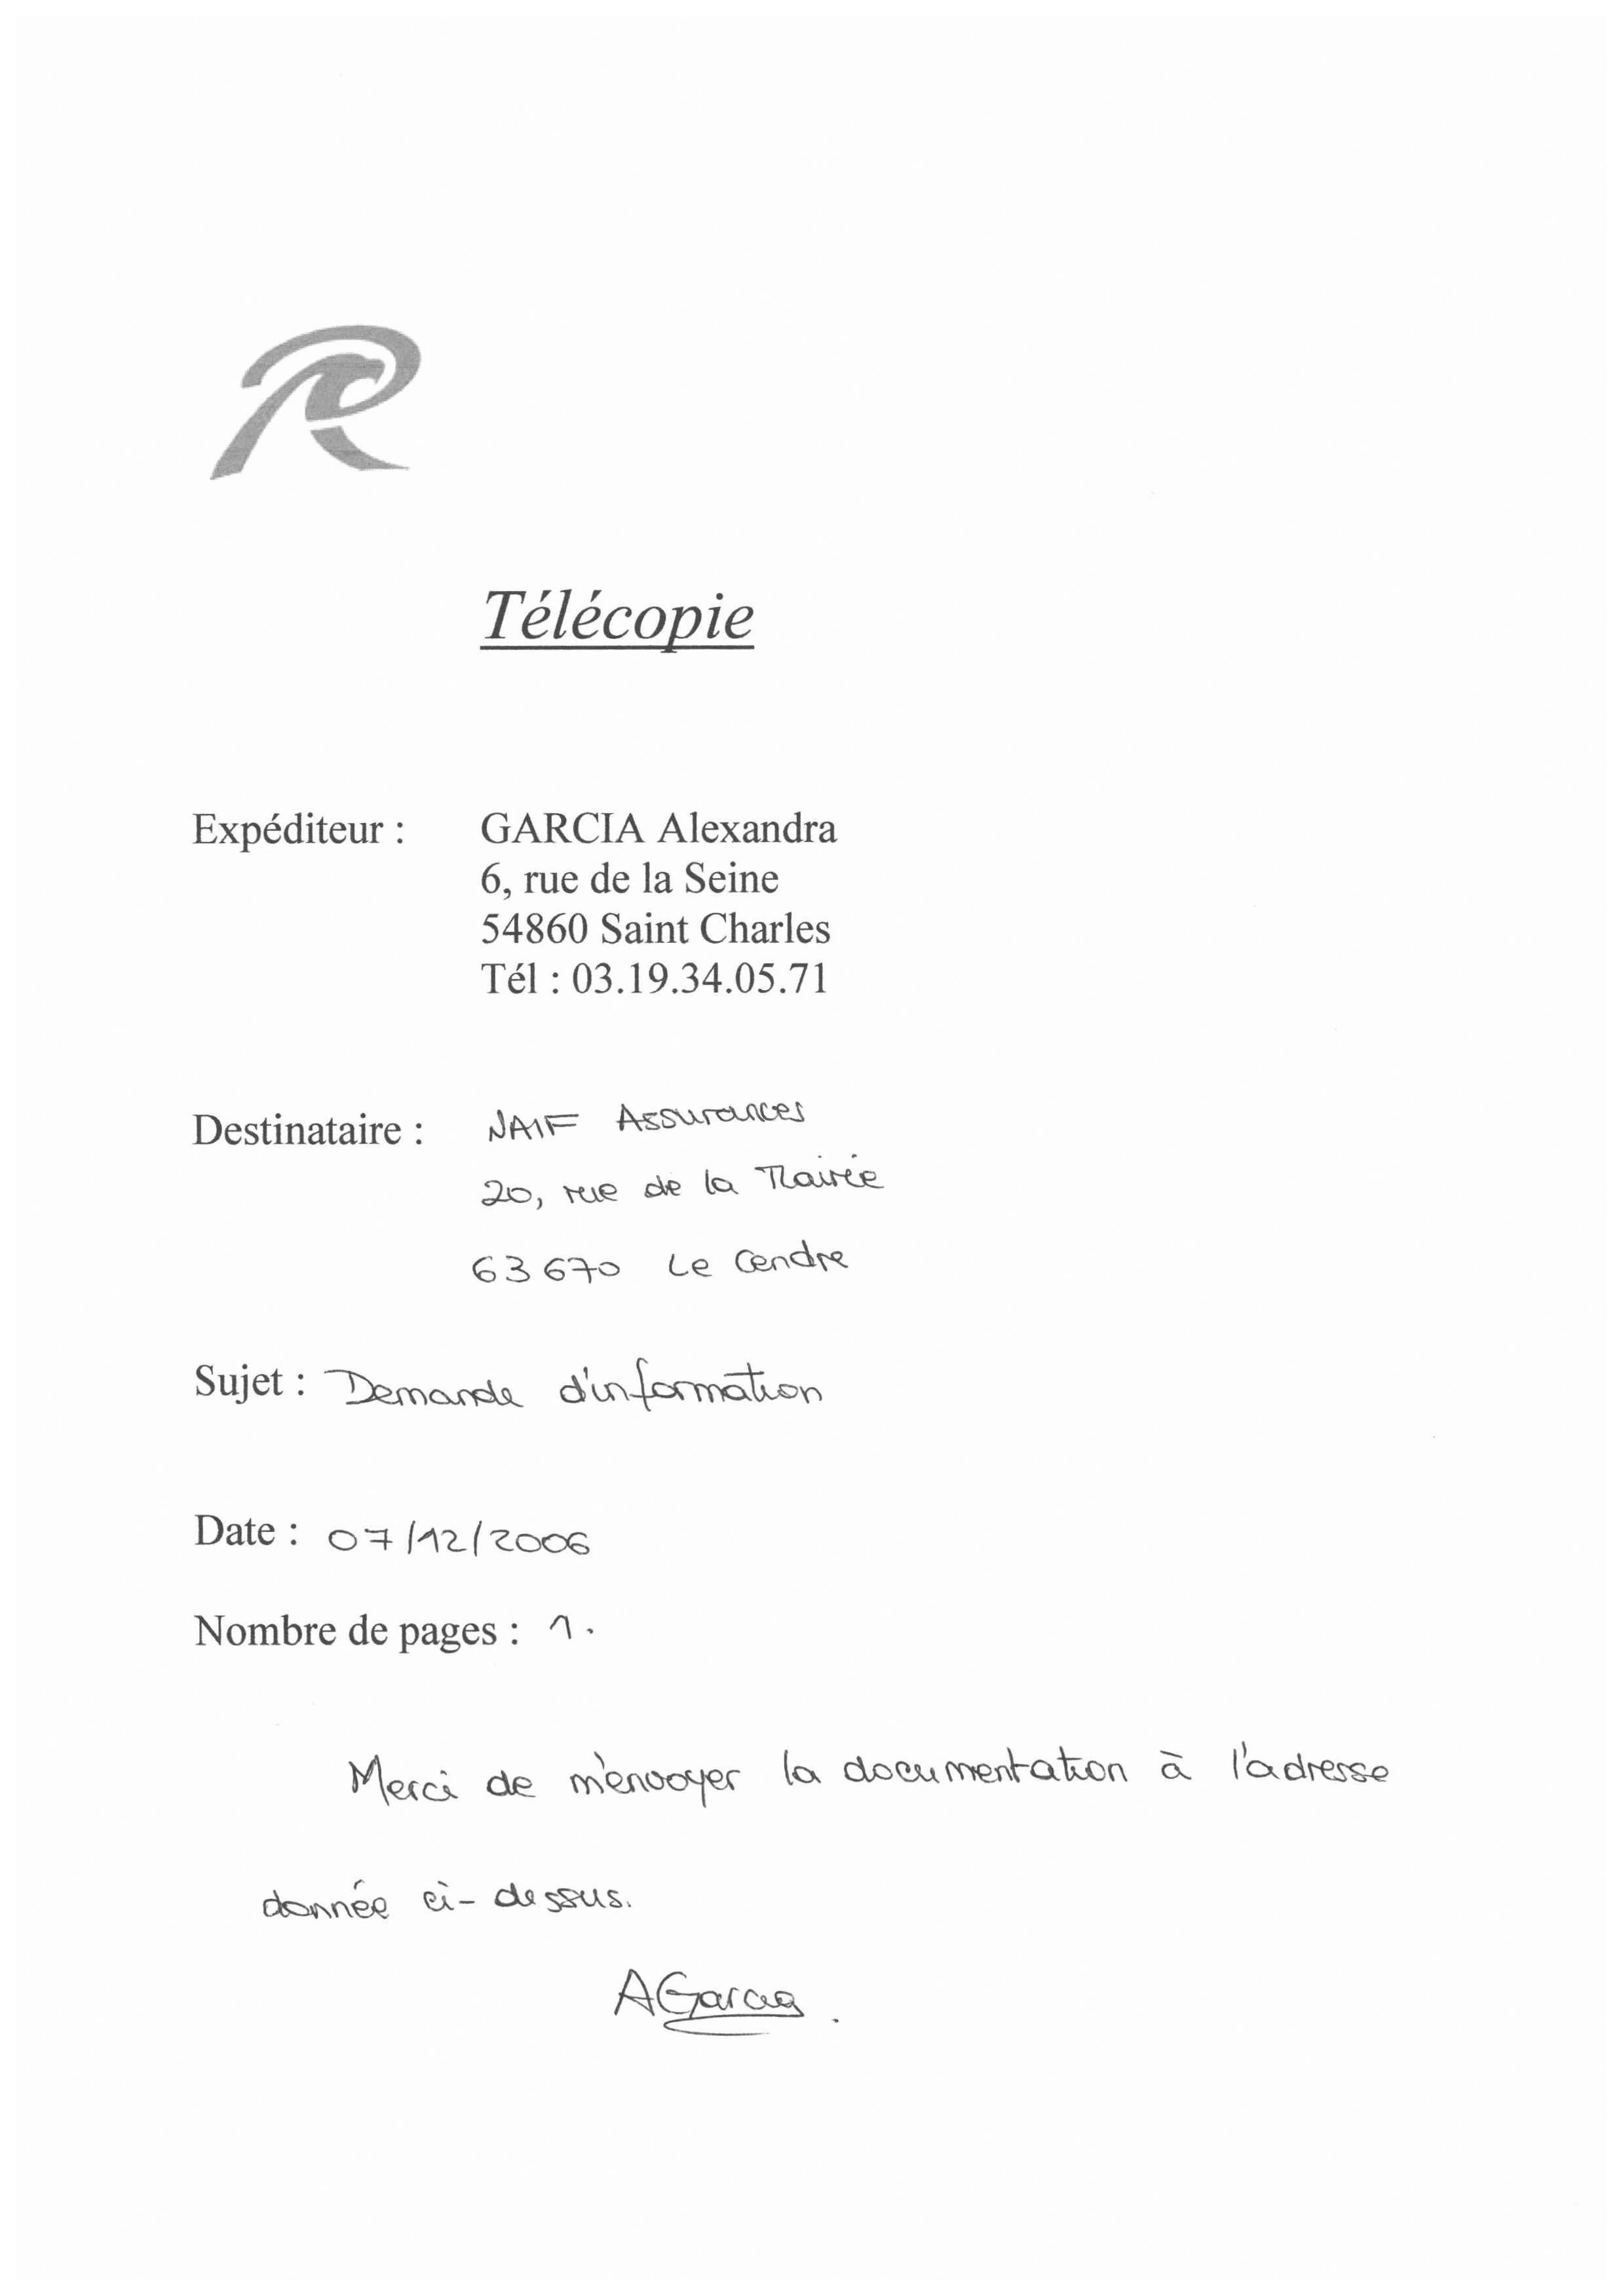 Télécopie
Expéditeur : GARCIA Alexandra
6, rue de la Seine
54860 Saint Charles
Tél : 03.19.34.05.71
Destinataire : NAIF Assurances
20, rue de la Mairie
63670 Le Cendre
Sujet : Demande d'information
Date : 07/12/2006
Nombre de pages : 1.
Merci de m'envoyer la documentation à l'adresse
donnée ci-dessus.
AGarcia.